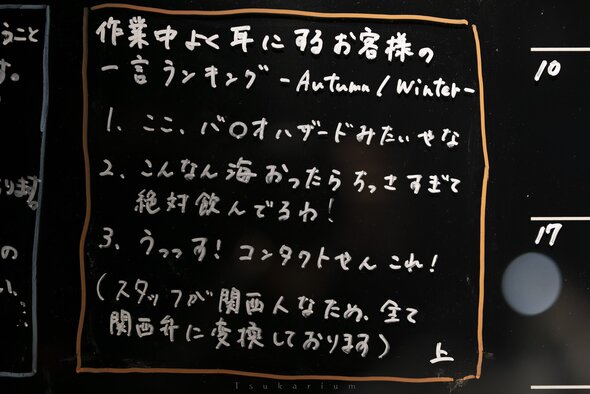 うこと
す。
ります。
の
作業中よく耳にするお客様の
一言ランキング -Autumn/Winter-
1. ここ、バ○オハザードみたいやな
2. こんなん海おったらちっさすぎて
絶対飲んでるわ!
3. うっっす! コンタクトやん これ!
(スタッフが関西人なため、全て
関西弁に変換しております)
上
10
17
Tsukarium